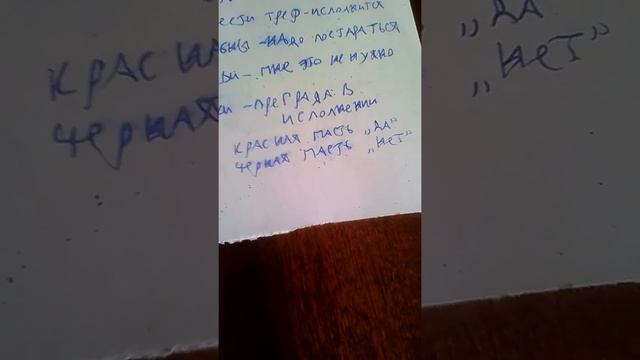 ести треф-исполнится
бны -надо постараться
ви - мне это не нужно
ки -преграда в
исполнении
красная масть „да"
черная масть „нет"